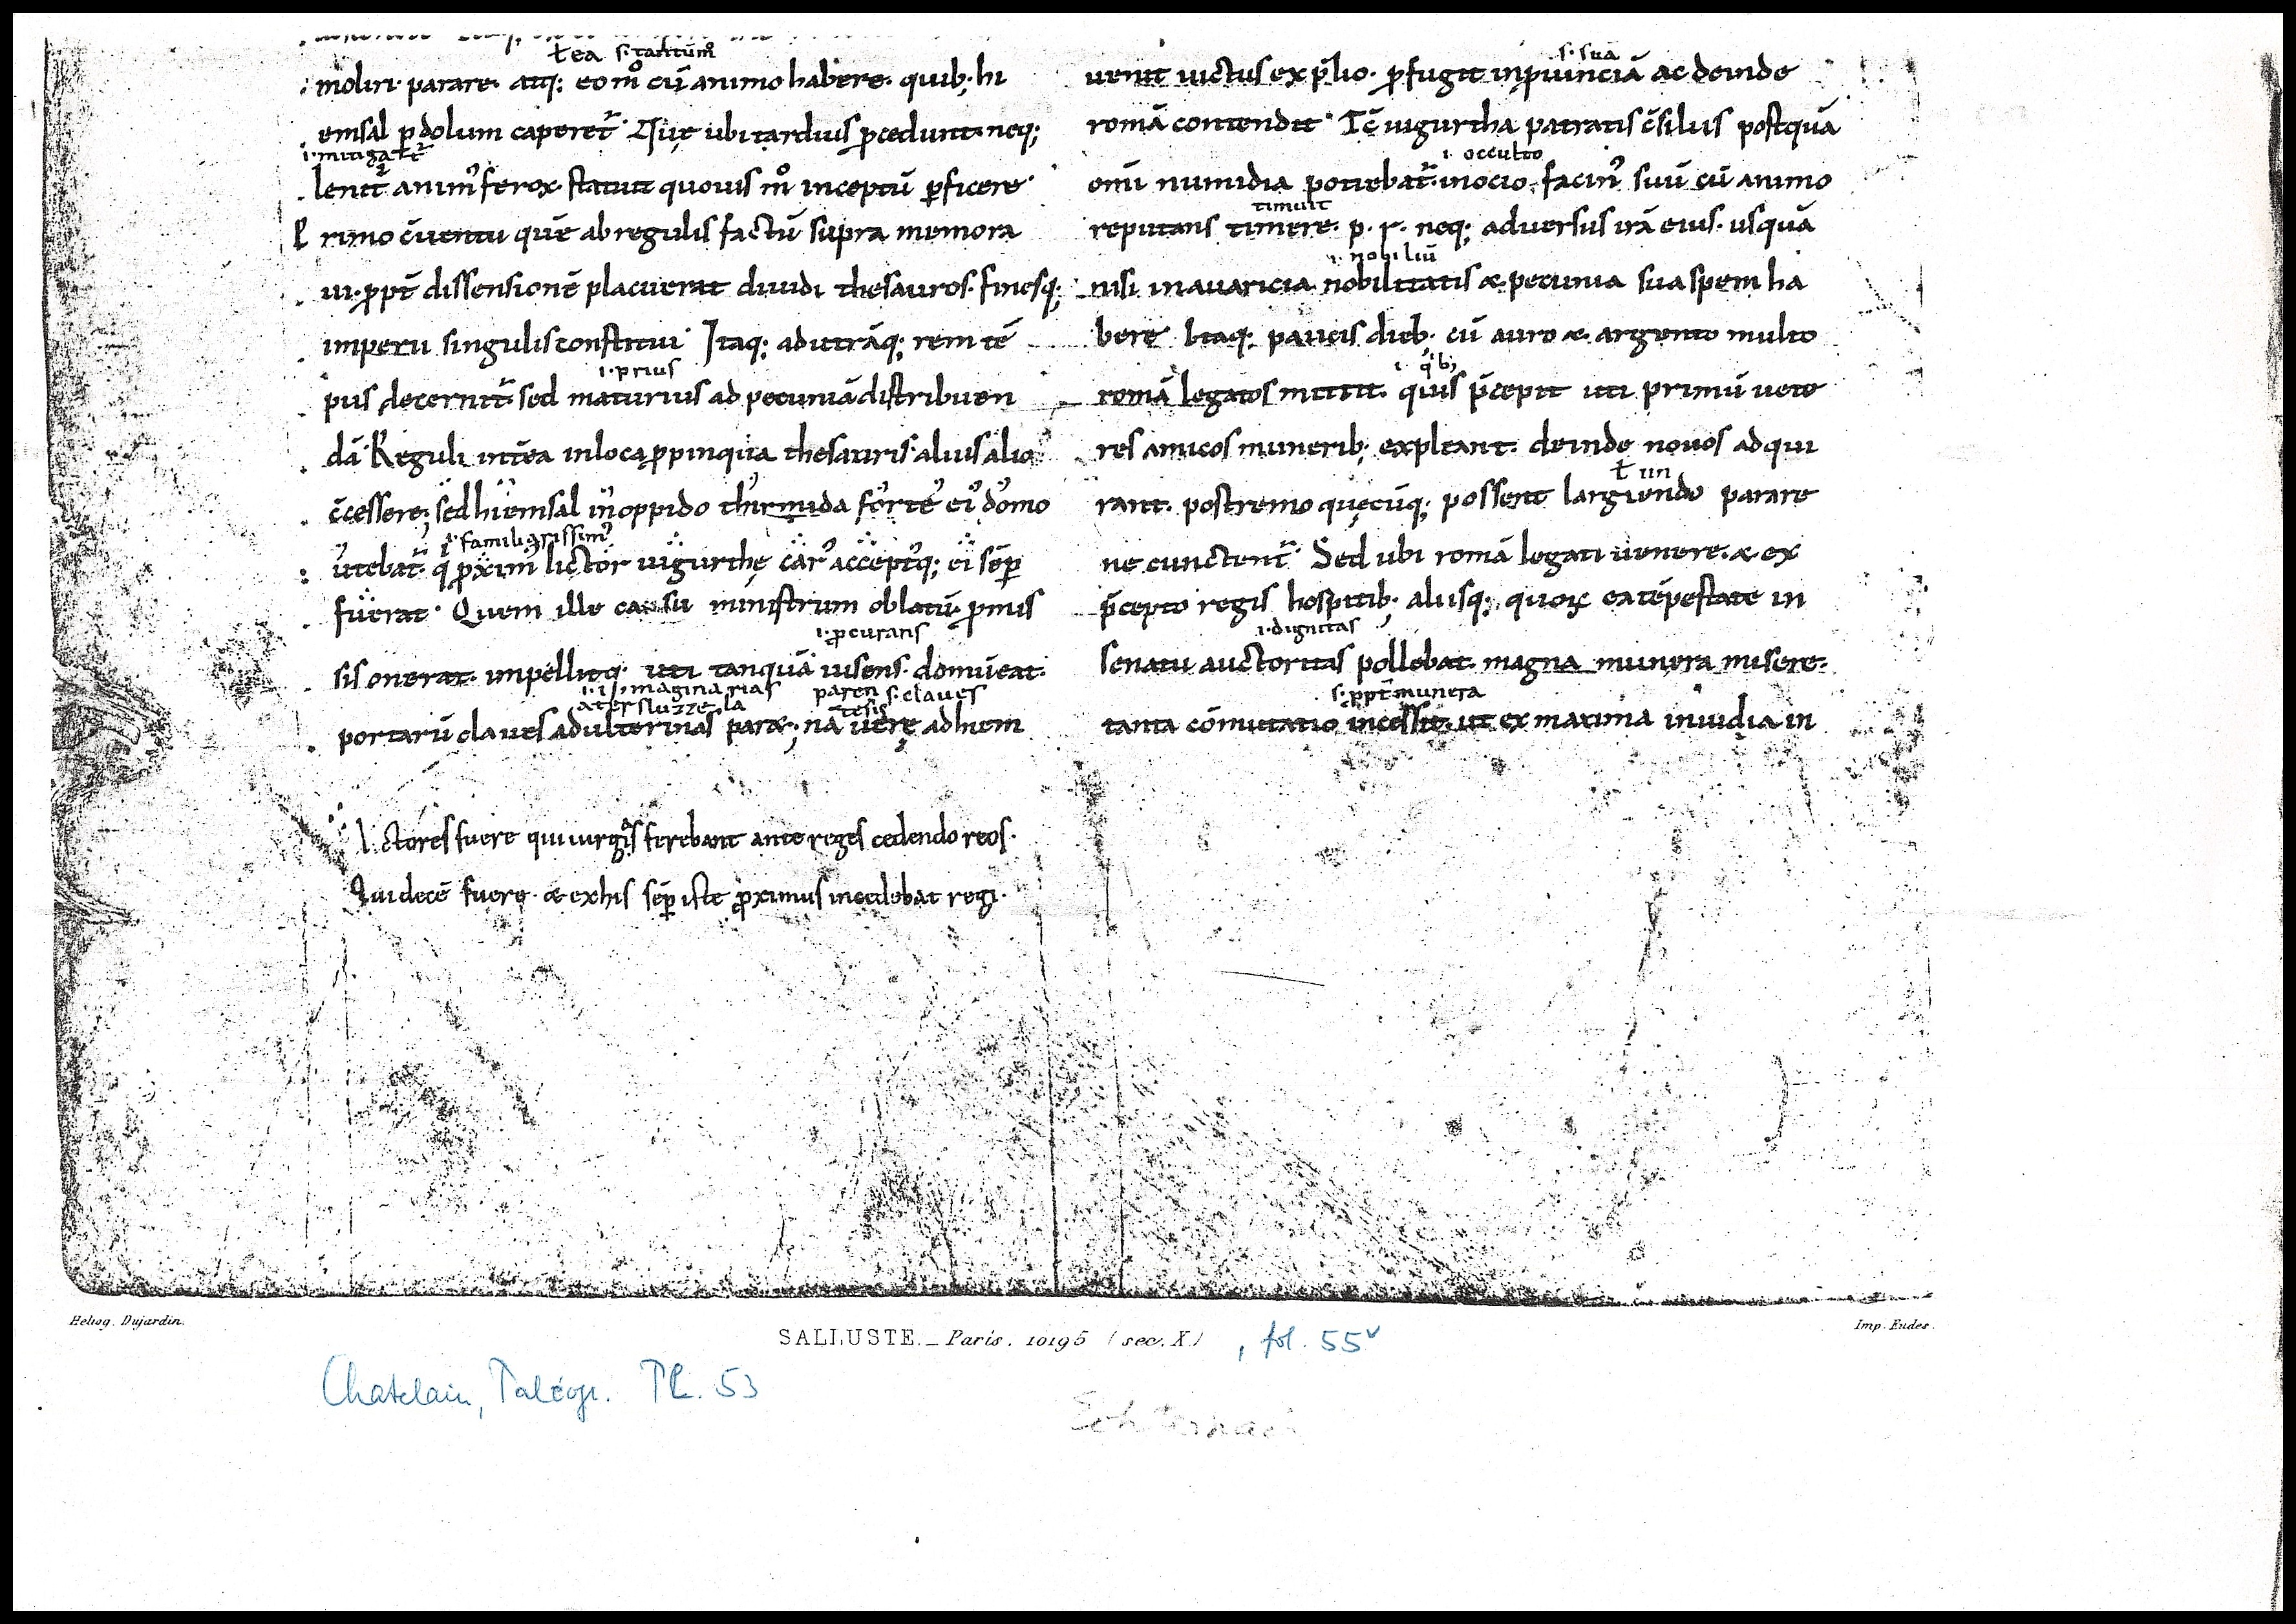 ł ea s· tantūm̊
moliri· parare· atq; eo m̊ cū animo habere· quib; hi
emsal p̱ dolum caperet᷑· Ꝗuę ubi tardius ꝓcedunt· neq;
i· mitigat᷑
lenit᷑ anim᾽ ferox· statuit quouis m̊ inceptū ꝑficere·
P rimo c̄uentu quē ab regulis factū supra memora
ui· ꝓpt̄ dissensionē placuerat diuidi thesauros· finesq;
imperii singulis constitui· Itaq; ad utrāq; rem tē
i· prius
pus decernit᷑· sed maturius ad pecuniā distribuen
dā· Reguli int̄ea in loca ꝓpinqua thesauris· alius alio
c̄cessere; sed hiemsal in oppido thirmida forte ei᾽ domo
i· familiarissim᾽
utebat᷑· q̇ ꝓxim᾽ lictor iugurthę car᾽ accept᾽q; ei sēꝑ
fuerat· Quem ille casu ministrum oblatū· ꝓmis
i· ꝓcurans
sis onerat· impellitq· uti tanquā uisens· domū eat·
i· is· imaginarias paren s· claues
aftersluzzela tesis
portarū claues adulterinas paræ; nā uerę ad hiem
Lictores fuere qui uirgas ferebant ante reges cedendo reos·
Qui decē fuere· æ ex his sēꝑ iste ꝓximus incedebat regi·
s· sua
uenit uictus ex p̄lio· ꝓfugit in ꝓuinciā ac deinde
romā contendit· Tc̄ iugurtha patratis c̄siliis postquā
i· occulto
omī numidia potiebat᷑· in ocio· facin᾽ suū cū animo
timuit
reputans timere· p· r· neq; aduersus irā eius· usquā
i· nobiliū
nisi in auaricia nobilitatis æ pecunia sua spem ha
bere· Itaq; paucis dieb· cū auro æ argento multo
i· qib;
romā legatos mittit· quis p̄cepit uti primū uete
res amicos munerib; expleant· deinde nouos adqui
ł iun
rant· postremo quęcūq; possent largiendo parare
ne cunctent᷑· Sed ubi romā legati uenere· æ ex
p̄cepto regis hospitib· aliisq; quoꝝ ea tēpestate in
i· dignitas
senatu auctoritas pollebat· magna munera misere·
s· ꝓpt̄ munera
tanta cōmutatio incessit· ut ex maxima inuidia in
Heliog. Dujardin.
Imp. Eudes.
SALLUSTE._Paris. 10195 (sec. X) , fol. 55v
Chatelain, Paléogr. Pl. 53
Echternach